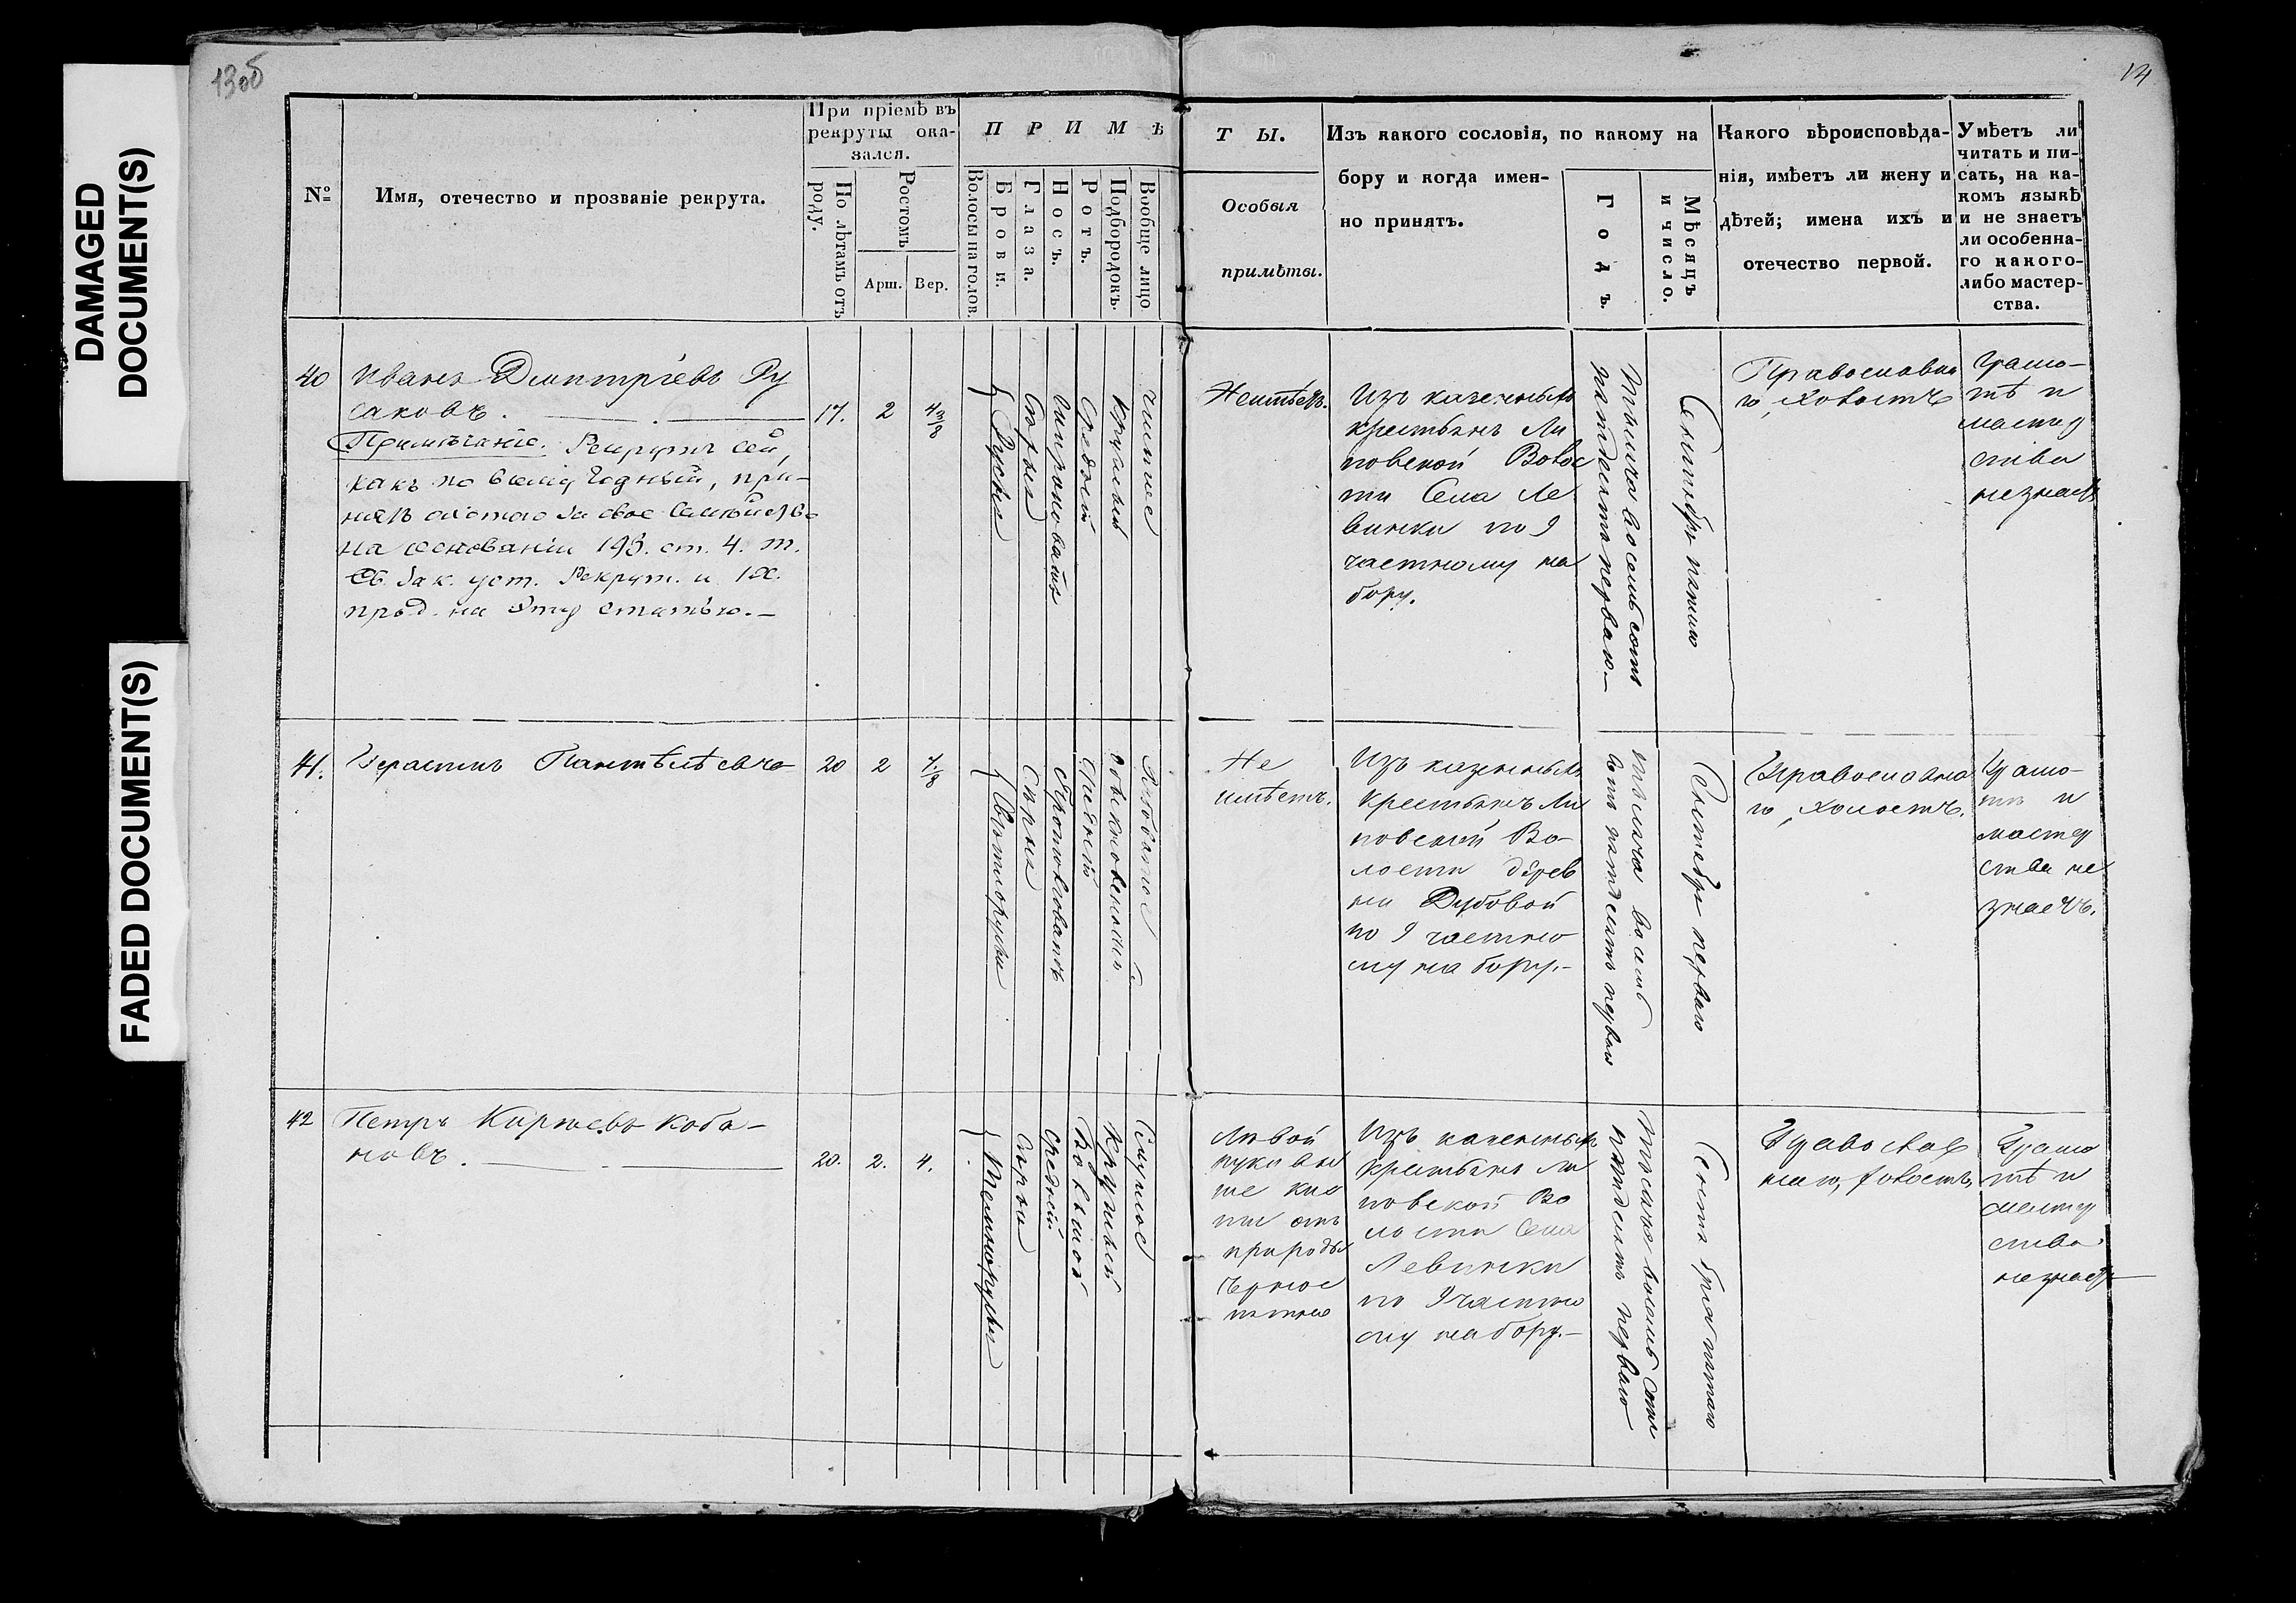 DAMAGED
DOCUMENT(S)
FADED DOCUMENT(S)
13об
14
№
Имя, отечество и прозваніе рекрута.
При пріемѣ въ
рекруты ока-
зался.
По лѣтамъ отъ
роду.
Ростомъ
Арш.
Вер.
П Р И М Ѣ
Волосы на голов.
Брови.
Глаза.
Носъ.
Ротъ.
Подбородокъ.
Вообще лицо
Т Ы.
Особыя
примѣты.
Изъ какого сословія, по какому на
бору и когда имен-
но принятъ.
Годъ.
Мѣсяцъ
и число.
Какого вѣроисповѣда-
нія, имѣетъ ли жену и
дѣтей; имена ихъ и
отечество первой.
Умѣетъ ли
читать и пи-
сать, на ка-
комъ языкѣ
и не знаетъ
ли особенна-
го какого-
либо мастер-
ства.
40
Иванъ Дмитріевъ Ру
саковъ.
Примѣчаніе. Рекрутъ сей,
какъ по всему годный, при-
нятъ охотою за свое семейство
на основаніи 193. ст. 4. т.
Св. Зак. уст. Рекрут. и IX.
прод. на эту статью.—
17.
2
4 3/8
Русыя
Сѣрыя
Средній
Круглый
Чистое
Неимѣетъ.
Изъ казенныхъ
крестьянъ Ли
повской Волос
ти Села Ле
винки по 9
частному на
бору.
Тысяча восемьсотъ
пятьдесятъ перваго.—
Сентября пятаго
Православна
го, холостъ
Грамо-
тѣ и
мастер
ства
незнаетъ
41.
20
2
4 1/8
Свѣтлорусыя
Сѣрыя
Средній
Обыкновенный
Рябоватое
Не
имѣетъ.
Изъ казенныхъ
Крестьянъ Ли
повской Во-
лости дерев
ни Дубовой
по 9 частно
му набору.—
тысяча восемь
сотъ пятьдесятъ перваго
Сентября перваго
Православна
го, холостъ.
Грамо-
тѣ и
мастер
ства не
знаетъ.
42
Петръ Коба-
новъ.
20.
2.
4.
Темнорусыя
Сѣрыя
Средній
Большой
Круглый
Смуглое
Лѣвой
руки вы
ше кис
ти отъ
природы
черное
пятно
Изъ казенныхъ
Крестьянъ Ли
повской Во
лости Села
Левинки
по 9 частно
му набору.—
Тысяча восемь сотъ
пятьдесятъ перваго
Сентября пятаго
Православ
наго, холостъ,
Грамо
тѣ и
мастер
ства
незнаетъ